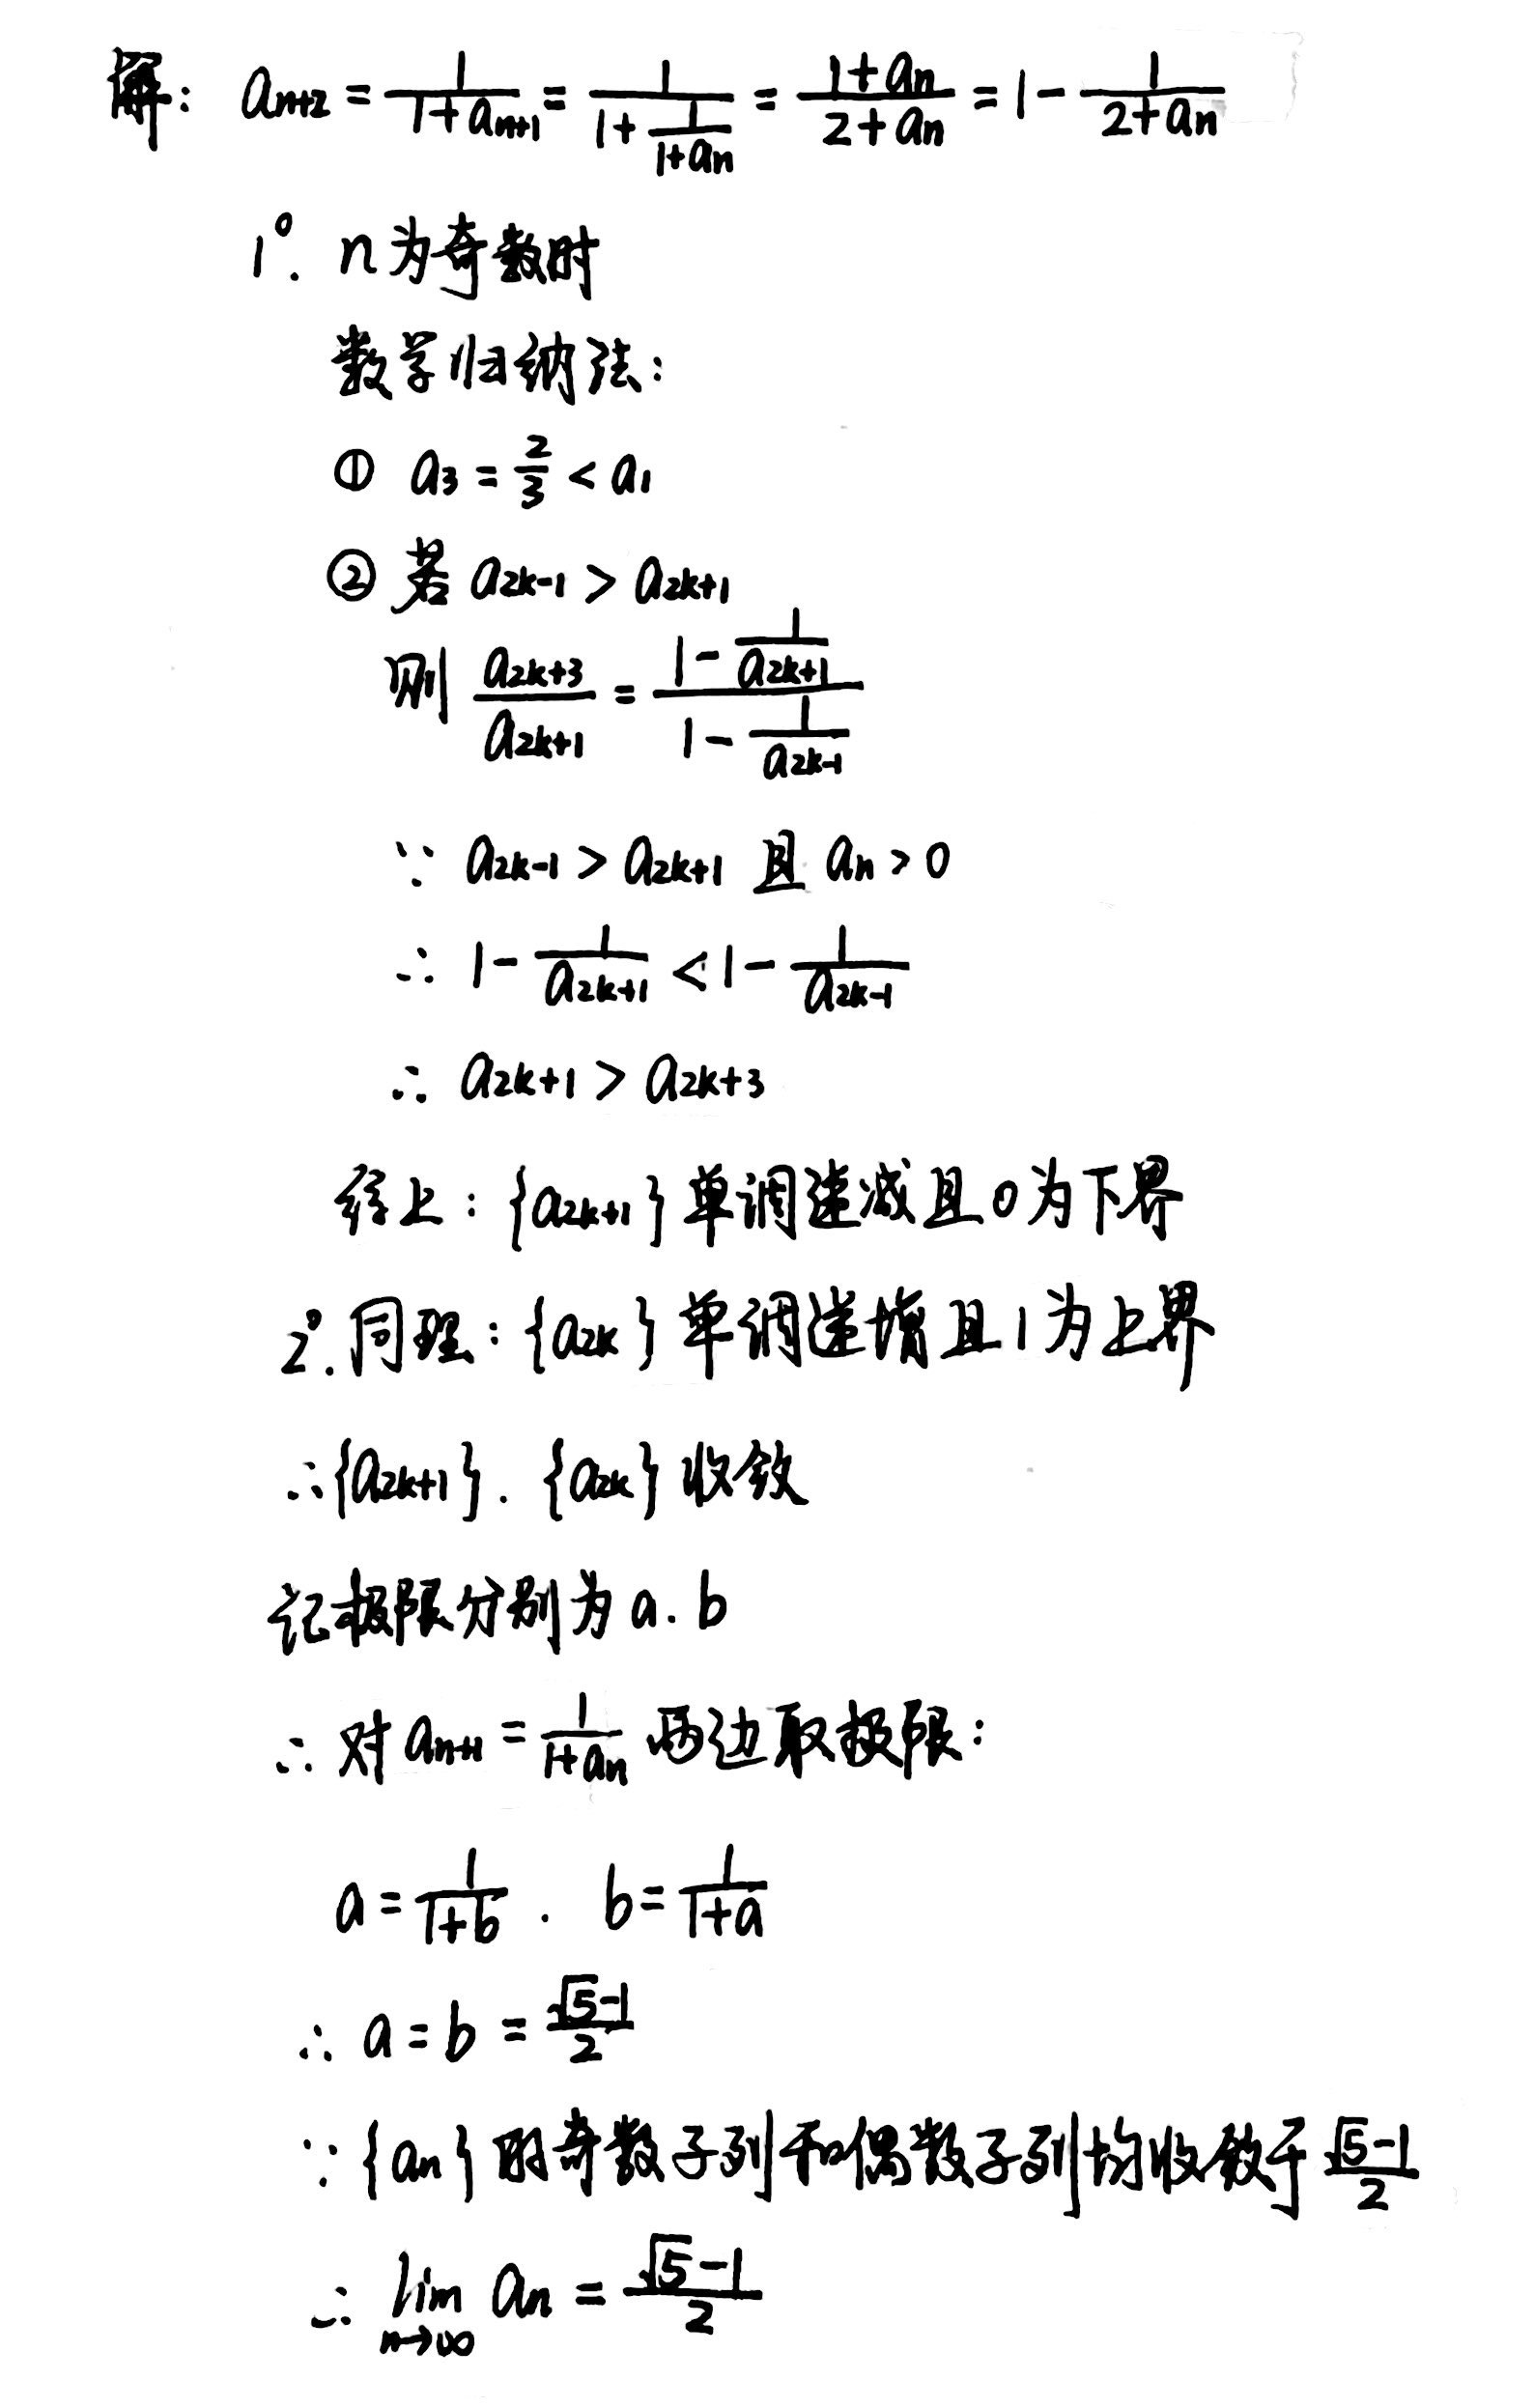 解: aₙ₊₂ = 1/(1+aₙ₊₁) = 1/(1+1/(1+aₙ)) = (1+aₙ)/(2+aₙ) = 1 - 1/(2+aₙ)
1°. n为奇数时
数学归纳法:
① a₃ = 2/3 < a₁
② 若 a₂ₖ₋₁ > a₂ₖ₊₁
则 a₂ₖ₊₃/a₂ₖ₊₁ = (1 - 1/a₂ₖ₊₁)/(1 - 1/a₂ₖ₋₁)
∵ a₂ₖ₋₁ > a₂ₖ₊₁ 且 aₙ > 0
∴ 1 - 1/a₂ₖ₊₁ < 1 - 1/a₂ₖ₋₁
∴ a₂ₖ₊₁ > a₂ₖ₊₃
综上: {a₂ₖ₊₁} 单调递减且0为下界
2°. 同理: {a₂ₖ} 单调递增且1为上界
∴ {a₂ₖ₊₁}. {a₂ₖ} 收敛
记极限分别为 a. b
∴ 对 aₙ₊₁ = 1/(1+aₙ) 两边取极限:
a = 1/(1+b) . b = 1/(1+a)
∴ a = b = (√5-1)/2
∵ {aₙ} 的奇数子列和偶数子列均收敛于 (√5-1)/2
∴ lim n→∞ aₙ = (√5-1)/2